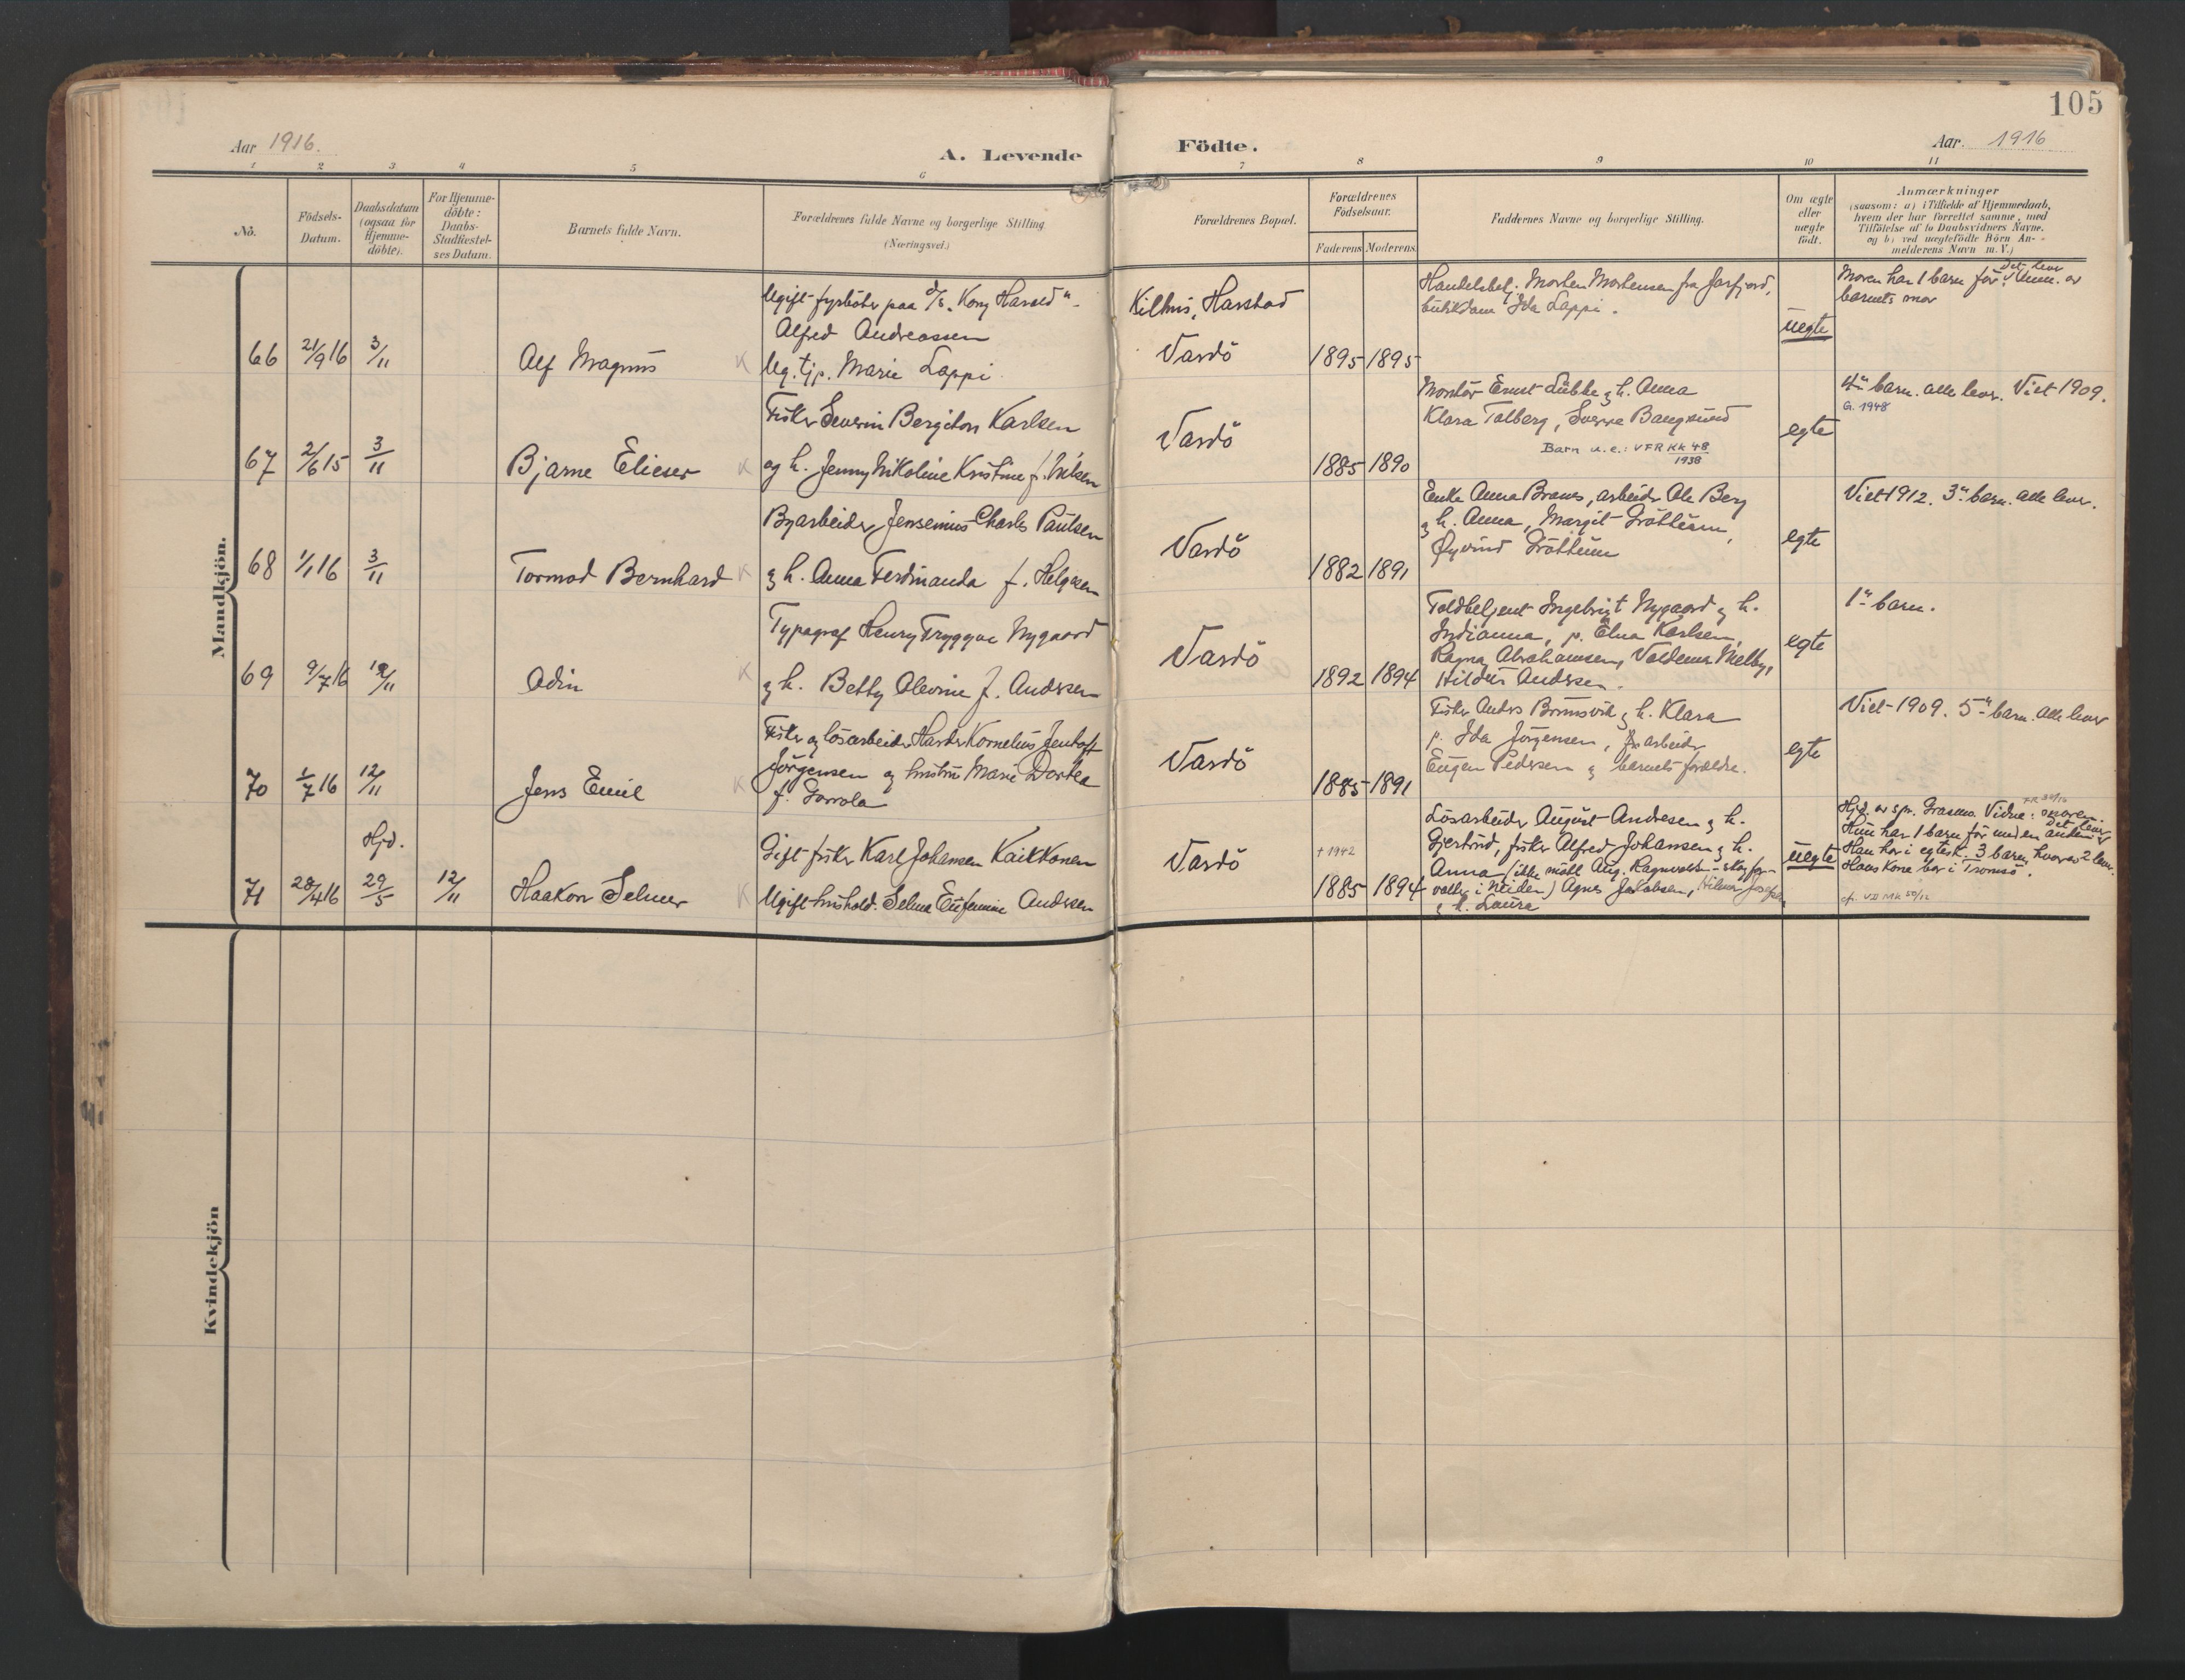 105
Aar 1916.
A. Levende
Födte.
Aar. 1916
1 2 3 4 5 6 7 8 9 10 11
No.
Födsels-
Datum.
Daabsdatum
(ogsaa for
Hjemme-
döbte).
For Hjemme-
döbte:
Daabs-
Stadfæstel-
ses Datum.
Barnets fulde Navn.
Forældrenes fulde Navne og borgerlige Stilling
(Næringsvei.)
Forældrenes Bopæl.
Forældrenes
Födselsaar.
Faderens Moderens.
Faddernes Navne og borgerlige Stilling.
Om ægte
eller
uægte
födt.
Anmærkninger
(saasom: a) i Tilfælde af Hjemmedaab,
hvem der har forrettet samme, med
Tilföielse af to Daabsvidners Navne,
og b) ved uægtefödte Börn An-
melderens Navn m. V.)
Mandkjön.
66 21/9 16 3/11 Alf Magnus
Ugift fyrböter paa d/s. "Kong Harald"
Alfred Andreassen
Ug. tj.p. Marie Lappi
Kilhus, Harstad
Vardö
1895 1895
Handelsbetj. Morten Mortensen fra Jarfjord,
butikdame Ida Lappi.
uegte
Moren har 1 barn før. det lever Anm. av
barnets mor
67 2/6 15 3/11 Bjarne Elieser
Fisker Severin Bergiton Karlsen
og h. Jenny Nikoline Kristine f. Nilsen
Vardö
1885 1890
Montör Ernst Lübbe og h. Anna
Klara Talberg, Sverre Bangsund
Barn u.e.: VFR KK 48/1938
egte
4de barn. alle lever. Viet 1909.
G. 1948
68 1/1 16 3/11 Tormod Bernhard
Byarbeider Jensenius Charles Paulsen
og h. Anna Ferdinanda f. Helgesen
Vardö
1882 1891
Enke Anna Braus, arbeider Ole Berg
og h. Anna, Margit Gröttum,
Øyvind Gröttum
egte
Viet 1912. 3de barn. alle lever.
69 9/7 16 12/11 Odin
Typograf Henry Tryggve Nygaard
og h. Betty Olevine f. Andersen
Vardö
1892 1894
Toldbetjent Ingebrigt Nygaard og h.
Indianna, p. Elna Karlsen,
Ragna Abrahamsen, Valdemar Melby,
Hildur Andersen.
egte
1ste barn.
70 1/7 16 12/11 Jens Emil
Fisker og lösarbeider Harder Kornelius Jentoft
Jörgensen og hustru Marie Dortea
f. Gorrola
Vardö
1885 1891
Fisker Anders Brunsvik og h. Klara
p. Ida Jörgensen, arbeider
Eugen Pedersen og barnets forældre.
egte
Viet 1909. 5te barn. alle lever
71 28/4 16 Hjd. 29/5 12/11 Haakon Selmer
Gift fisker Karl Johansen Kaikkonen
Ugift hushold. Selma Eufemine Andersen
Vardö
† 1942
1885 1894
Lösarbeider August Andresen og h.
Gjertrud, fisker Alfred Johansen og h.
Anna (ikke mött Aug. Ragnvald - skogfor-
valter i Neiden) Agnes Jakobsen, Hilmar Josefsen
og h. Laura
uegte
Hjd. av spr. Grasmo. Vidne: moren.
Hun har 1 barn för med en anden. det lever
Han har i egtesk. 3 barn, hvorav 2 lever.
Hans kone bor i Tromsö.
Kvindekjön